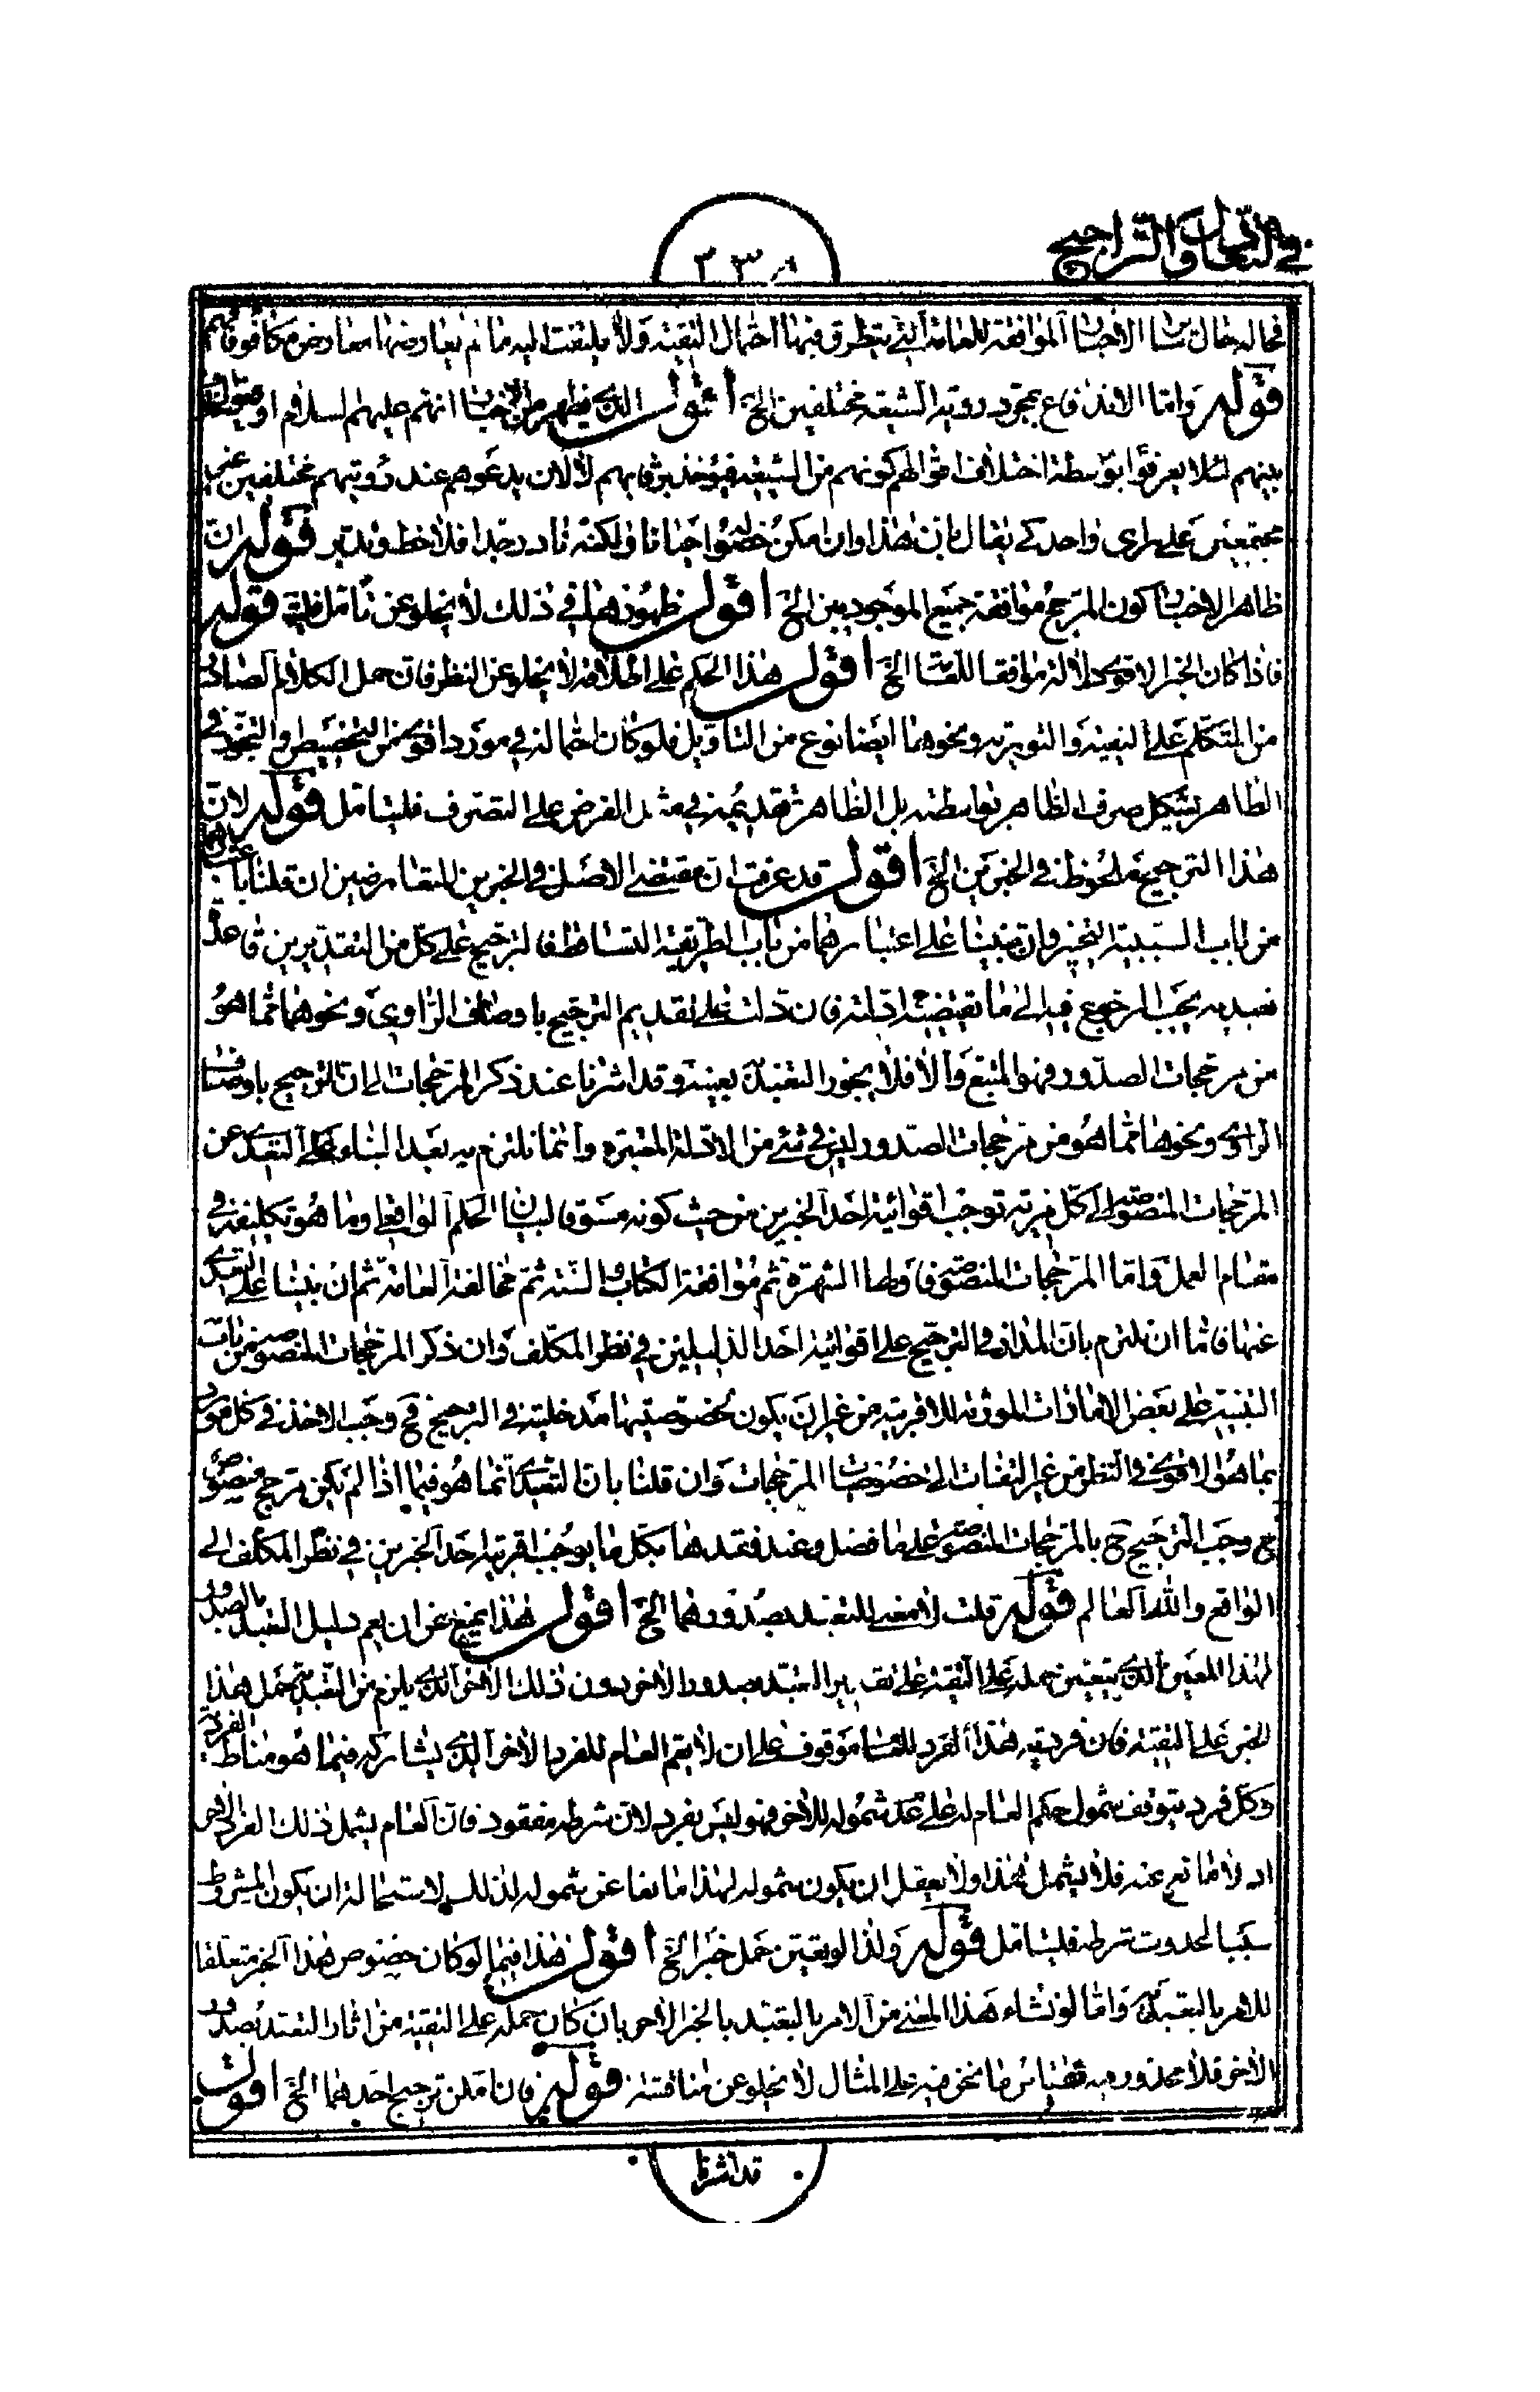 في التعادل والتراجيح
٣٣٨
فحاله حال سائر الأخبار الموافقة للعامة التي يتطرق فيها احتمال التقية ولا يلتفت اليه ما لم يعارضها معارض مكافؤ فافهم
قوله واما الاندفاع بمجرد رؤية الشيعة مختلفين الخ اقول الذي يظهر من الاخبار انهم عليهم السلام اوقعوا الخلاف
بينهم لئلا يعرفوا بواسطة اختلاف اقوالهم كونهم من الشيعة فيؤخذ برقابهم لا لان يدعوهم عند رؤيتهم مختلفين غير
مجتمعين على رأى واحد كي يقال بان هذا وان امكن حصوله احيانا ولكنه نادر جدا فلاحظ وتدبر قوله ان
ظاهر الاخبار كون المرجح موافقة جميع الموجودين الخ اقول ظهورها في ذلك لا يخلو عن تأمل فليتأمل قوله
فاذا كان الخبر الاقوى دلالة موافقا للعامة الخ اقول هذا الحكم على اطلاقه لا يخلو عن النظر فان حمل الكلام الصادر
من المتكلم على التقية والتورية ونحوهما ايضا نوع من التأويل فلو كان احتماله في مورد اقوى من التخصيص والتجوز في
الظاهر يشكل صرف الظاهر بواسطته بل الظاهر تقديمه في مثل الفرض على التصرف فليتأمل قوله لان
هذا الترجيح ملحوظ في الخبرين الخ اقول قد عرفت ان مقتضى الاصل في الخبرين المتعارضين ان قلنا باعتبارهما
من باب السببية التخيير وان بنينا على اعتبارهما من باب الطريقية التساقط فالترجيح على كل من التقديرين قاعدة
تعبدية يجب الرجوع فيها الى ما تقتضيه ادلته فان دلت على تقديم الترجيح باوصاف الراوي ونحوها مما هو
من مرجحات الصدور فهو المتبع والا فلا يجوز التعبد بعينه وقد اشرنا عند ذكر المرجحات الى ان الترجيح باوصاف
الراوي ونحوها مما هو من مرجحات الصدور ليس في شئ من الادلة المعتبرة وانما نلتزم به بعد البناء على التعدي عن
المرجحات المنصوصة الى كل مزية توجب اقوائية احد الخبرين من حيث كونه مسوقا لبيان الحكم الواقعي وما هو تكليفه في
مقام العمل واما المرجحات المنصوصة فاولها الشهرة ثم موافقة الكتاب والسنة ثم مخالفة العامة ثم ان بنينا على التعدي
عنها فاما ان نلتزم بان المدار في الترجيح على اقوائية احد الدليلين في نظر المكلف وان ذكر المرجحات المنصوصة من باب
التنبيه على بعض الامارات الموروثة للاقربية من غير ان يكون لخصوصيتها مدخلية في الترجيح فح وجب الاخذ في كل مورد
بما هو الاقوى في النظر من غير التفات الى خصوصيات المرجحات وان قلنا بان التعدي انما هو فيما اذا لم يكن مرجح منصوص
وجب الترجيح ح بالمرجحات المنصوصة على ما فصل وعند فقدها بكل ما يوجب اقربية احد الخبرين في نظر المكلف الى
الواقع والله العالم قوله قلت لا معنى للتعبد بصدورهما الخ اقول هذا يمنع عن ان يعم دليل التعبد بالصدور
لهذا المعين الذي يتعين حمله على التقية على تقدير التعبد بصدور الاخر دون ذلك الاخر الذي يلزم من التعبد به حمل هذا
الخبر على التقية فان فردية هذا الفرد للعام موقوف على ان لا يعم العام للفرد الاخر الذي يشاركه فيما هو مناط الفردية
وكل فرد يتوقف شمول حكم العام له على عدم شموله للاخر فهو ليس بفرد لان شرطه مفقود فان العام يشمل ذلك الفرد الاخر
اذ لا مانع عنه فلا يشمل هذا ولا يعقل ان يكون شموله لهذا مانعا عن شموله لذلك لاستحالة ان يكون المشروط
سببا لحدوث شرطه فليتأمل قوله ولذا لو تعين حمل خبر الخ اقول هذا فيما لو كان خصوص هذا الخبر متعلقا
للامر بالتعبد به واما لو نشاء هذا المعنى من الامر بالتعبد بالخبر الاخر بان كان حمله على التقية من اثار التعبد بصدور
الاخر فلا محذور فيه فقياس ما نحن فيه على المثال لا يخلو عن مناقشة قوله فان امكن ترجيح احدهما الخ اقول
قد اشرنا